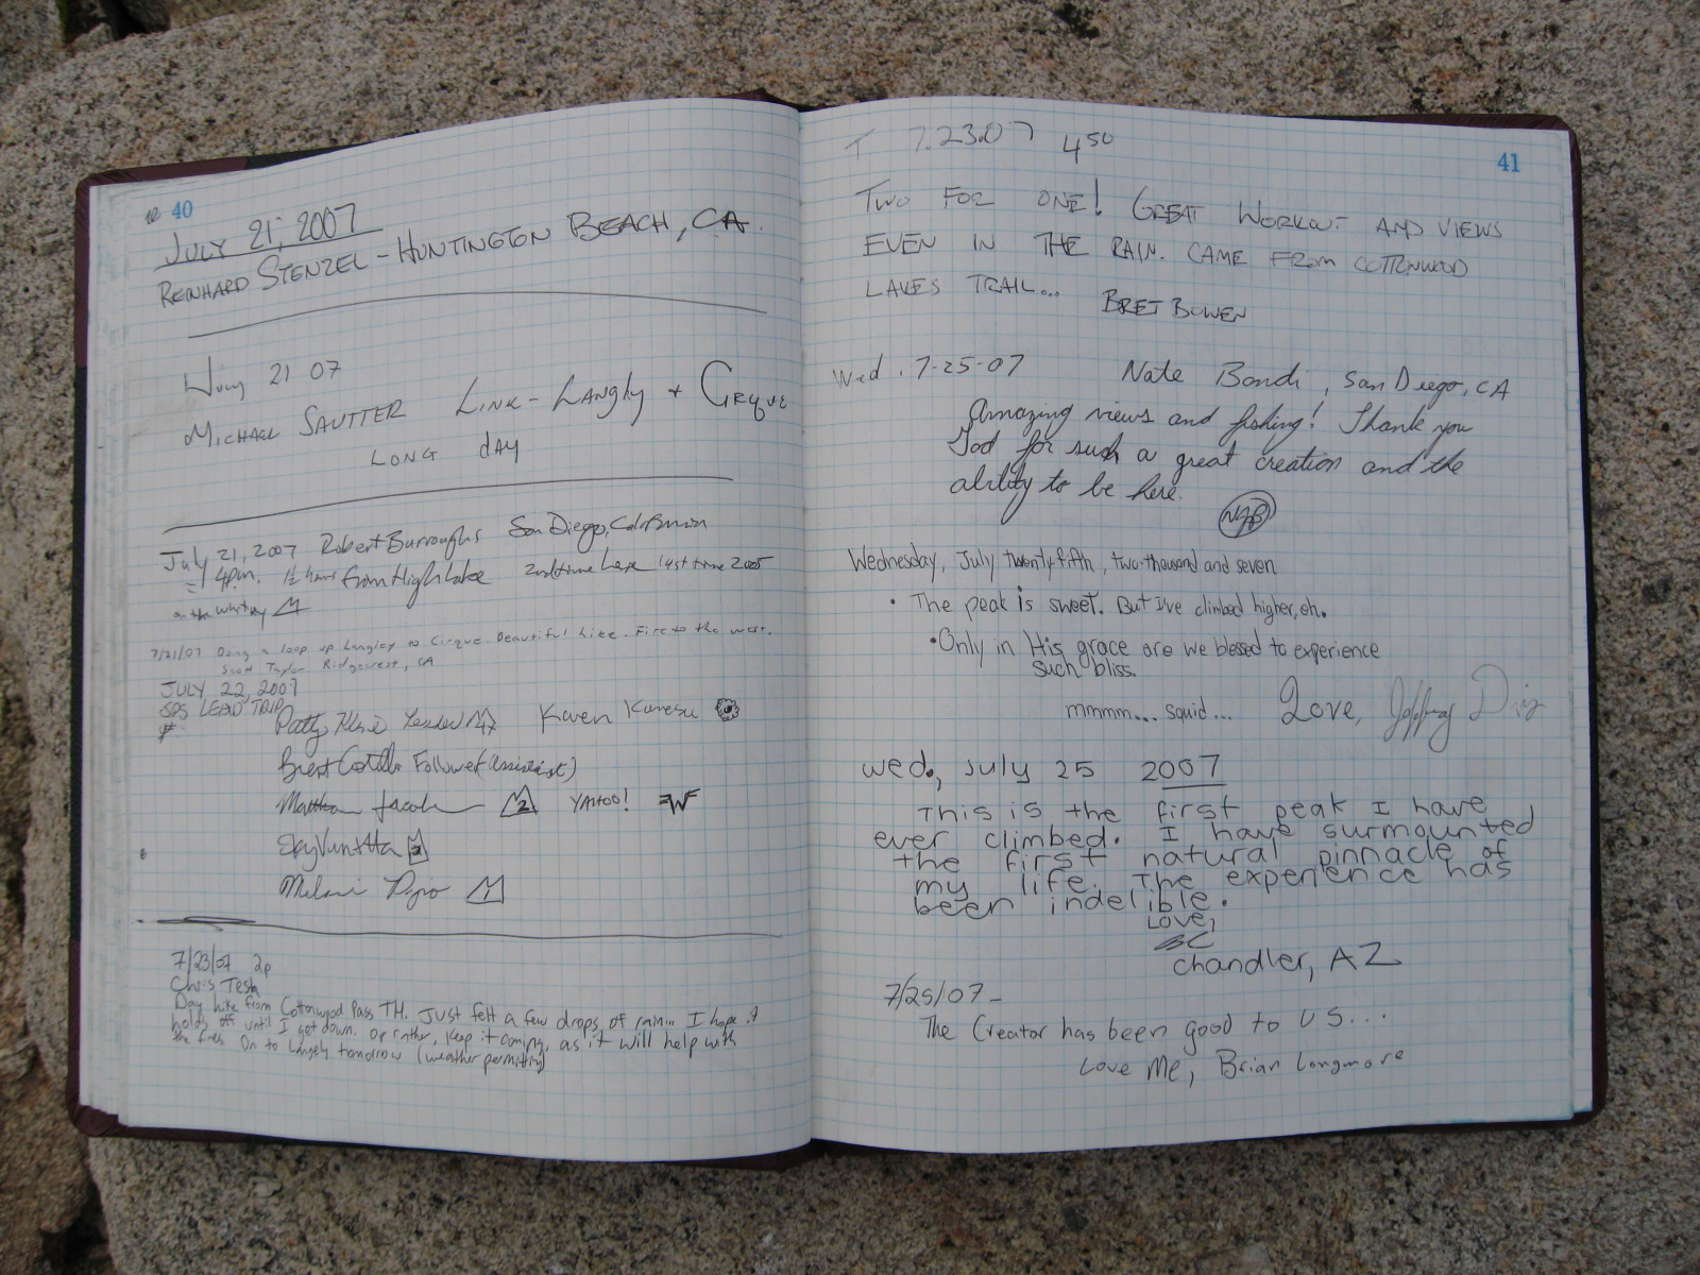 40
JULY 21, 2007
REINHARD STENZEL - HUNTINGTON BEACH, CA.
July 21 07
MICHAEL SAUTTER LINK - LANGLEY + CIRQUE
LONG dAY
July 21, 2007 Robert Burroughs San Diego, California
4pm. 1½ hours from High Lake 2nd time here last time 2005
on the way
7/21/07 Doing a loop up Langley to Cirque. Beautiful hike. Fire to the west.
Scott Taylor Ridgecrest, CA
JULY 22, 2007
SPS LEAD TRIP
Patty Kline Leader Karen
Brent Costello Follower (assistant)
YAHOO!
7/23/07 2p
Chris Tesh
Day hike from Cottonwood Pass TH. Just felt a few drops of rain... I hope it
holds off until I get down. Or rather, keep it coming, as it will help with
the fires. On to Langely tomorrow (weather permitting)
41
7.23.07 4 50
TWO FOR ONE! GREAT WORKOUT AND VIEWS
EVEN IN THE RAIN. CAME FROM COTTONWOOD
LAKES TRAIL... BRET BOWEN
Wed. 7-25-07 Nate Bondi, San Diego, CA
Amazing views and fishing! Thank you
God for such a great creation and the
ability to be here.
Wednesday, July twenty fifth, two-thousand and seven
• The peak is sweet. But I've climbed higher, eh.
• Only in His grace are we blessed to experience
such bliss.
mmmm... squid... Love, Jeffrey
Wed., July 25 2007
This is the first peak I have
ever climbed. I have surmounted
the first natural pinnacle of
my life. The experience has
been indelible.
Love,
Chandler, AZ
7/25/07-
The Creator has been good to US...
Love Me, Brian Longmore